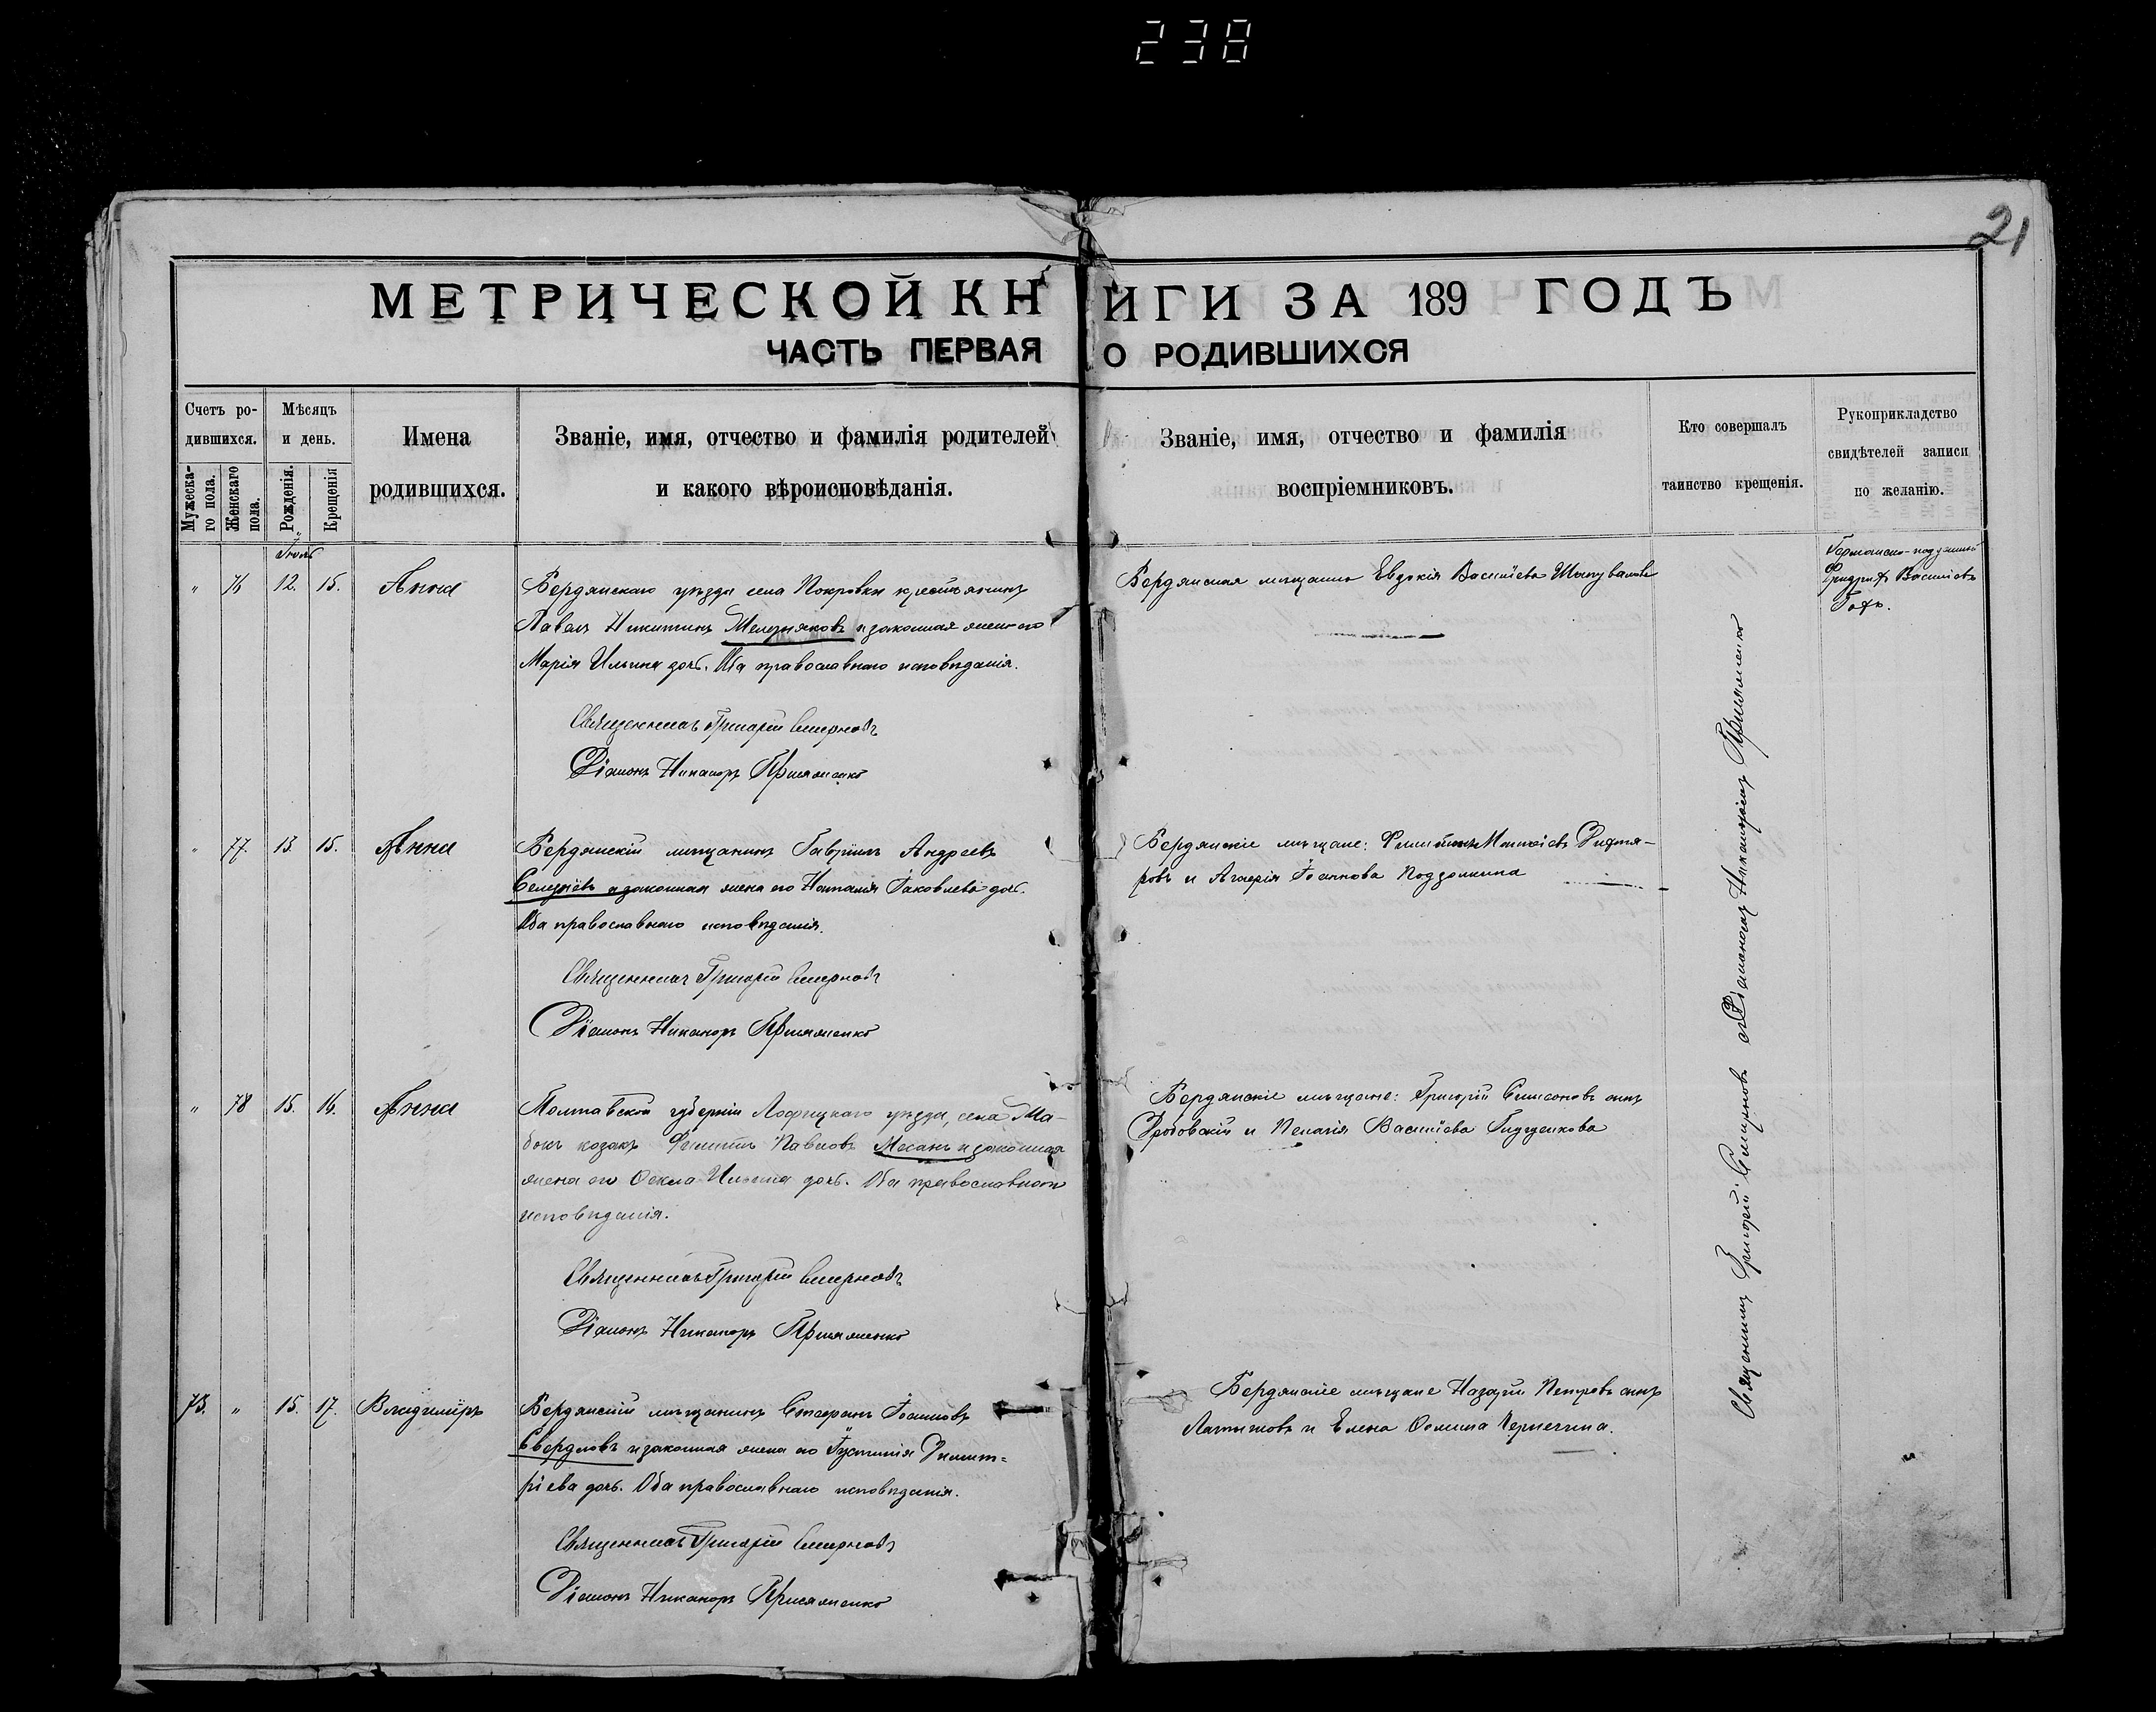 238
21
МЕТРИЧЕСКОЙ КНИГИ ЗА 189 ГОДЪ
ЧАСТЬ ПЕРВАЯ О РОДИВШИХСЯ
Счетъ ро-
дившихся.
Мужеска-
го пола.
Женскаго
пола.
Мѣсяцъ
и день.
Рожденія.
Крещенія
Имена
родившихся.
Званіе, имя, отчество и фамилія родителей
и какого вѣроисповѣданія.
Званіе, имя, отчество и фамилія
воспріемниковъ.
Кто совершалъ
таинство крещенія.
Рукоприкладство
свидѣтелей записи
по желанію.
Іюль
" 76 12. 15. Анна
Бердянскаго уѣзда села Покровки крестьянинъ
Павелъ Никитинъ и законная жена его
Марія Ильина дочь. Оба православнаго исповѣданія.
Священникъ Григорій Смирновъ
Діаконъ Никаноръ Присяженко
Бердянская мѣщанка Евдокія Васильева Шаповалова
Германско-подданный
Фридрихъ Васильевъ
" 77. 13. 15. Анна
Бердянскій мѣщанинъ Гавріилъ Андреевъ
и законная жена его Наталія Іаковлева дочь.
Оба православнаго исповѣданія.
Священникъ Григорій Смирновъ
Діаконъ Никаноръ Присяженко
Бердянскіе мѣщане: Дихтя-
ровъ и Іоаннова
" 78 15. 16. Анна
Полтавской губерніи Лохвицкаго уѣзда, села
козакъ Филиппъ Павловъ и законная
жена его Ѳекла Ильина дочь. Оба православнаго
исповѣданія.
Священникъ Григорій Смирновъ
Діаконъ Никаноръ Присяженко
Бердянскіе мѣщане: Григорій Симеоновъ сынъ
Дробовскій и Пелагія Васильева
73. " 15. 17. Владиміръ
Бердянскій мѣщанинъ Стефанъ Іоанновъ
Свердловъ и законная жена его Іустинія Димит-
ріева дочь. Оба православнаго исповѣданія.
Священникъ Григорій Смирновъ
Діаконъ Никаноръ Присяженко
Бердянскіе мѣщане Назарій Петровъ сынъ
и Елена Ѳомина
Священникъ Григорій Смирновъ съ Діакономъ Никаноромъ Присяженко